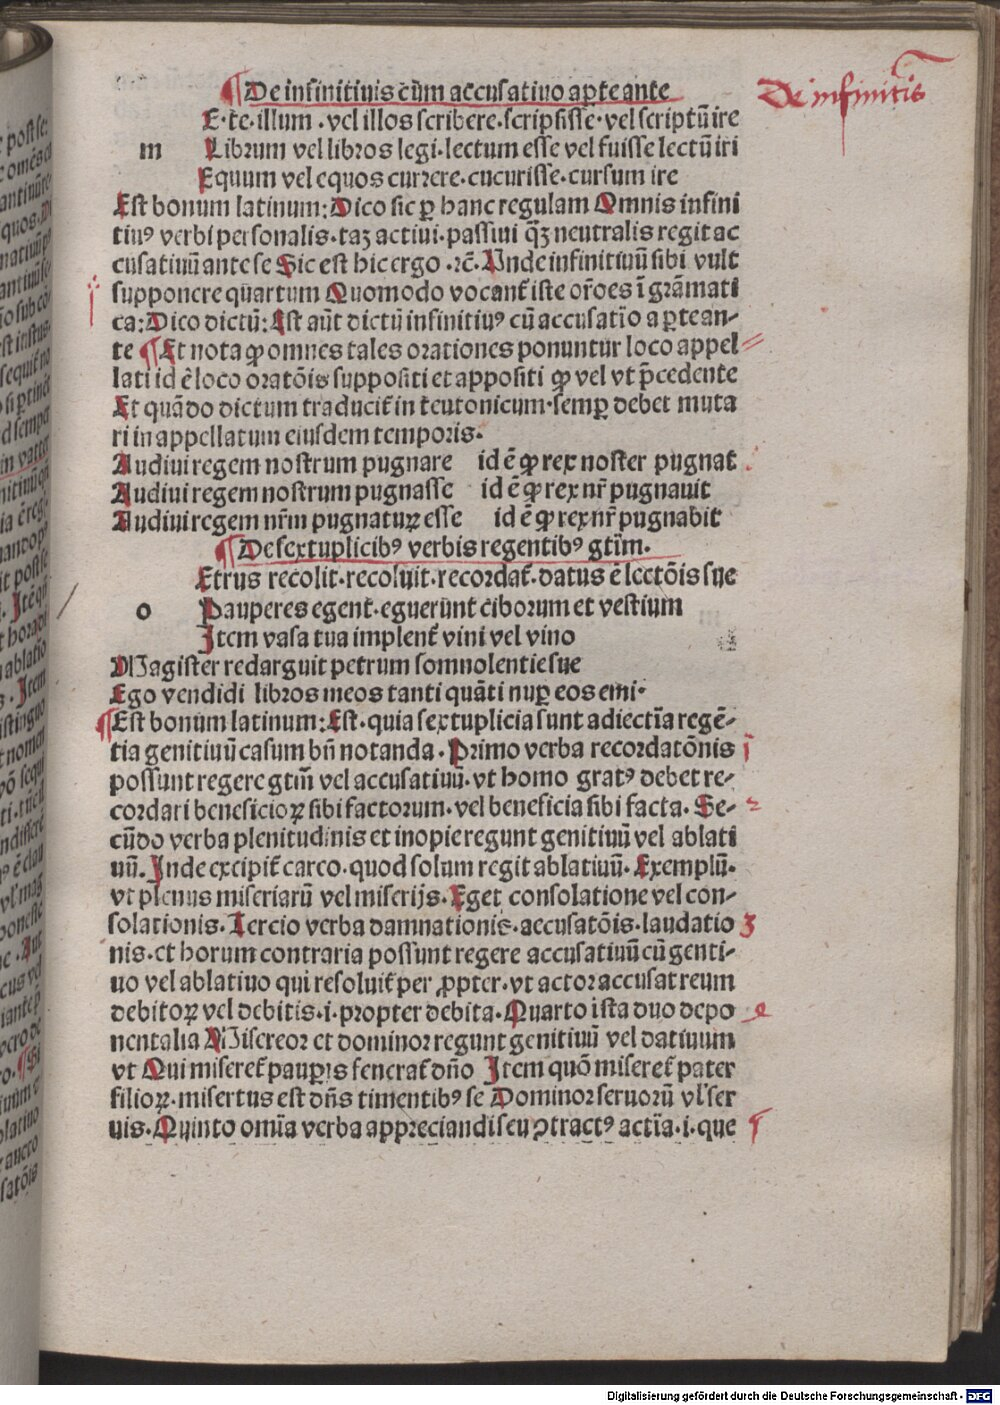 ¶De infinitiuis cũm accusatiuo a ꝑte ante
De infinitis
E·te·illum·vel illos scribere·scripsisse·vel scriptũ ire
m Librum vel libros legi·lectum esse vel fuisse lectũ iri
Equum vel equos currere·cucurisse·cursum ire
Est bonum latinum: Dico sic ꝑ hanc regulam Omnis infini
tiuꝰ verbi personalis·taꝫ actiui·passiui q̃ꝫ neutralis regit ac
cusatiuũ ante se Sic est hic ergo ·⁊c̃· Unde infinitiuũ sibi vult
supponere quartum Quomodo vocant̃ iste or̃oes ĩ grãmati
ca: Dico dictũ: Est aũt dictũ infinitiuꝰ cũ accusatĩo a ꝑte an-
te ¶Et nota ꝙ omnes tales orationes ponuntur loco appel
lati id ẽ loco oratõis suppositi et appositi ꝙ vel vt p̃cedente
Et quãdo dictum traducit̃ in teutonicum·semꝑ debet muta
ri in appellatum eiusdem temporis·
Audiui regem nostrum pugnare id ẽ ꝙ rex noster pugnat
Audiui regem nostrum pugnasse id ẽ ꝙ rex nr̃ pugnauit
Audiui regem nr̃m pugnaturꝫ esse id ẽ ꝙ rex nr̃ pugnabit
¶De sextuplicibꝰ verbis regentibꝰ gtĩm.
Etrus recolit·recoluit·recordat̃·datus ẽ lectõis sue
o Pauperes egent·eguerũnt ciborum et vestium
Item vasa tua implent̃ vini vel vino
Magister redarguit petrum somnolentie sue
Ego vendidi libros meos tanti quãti nuꝑ eos emi·
¶Est bonum latinum: Est·quia sextuplicia sunt adiectĩa regẽ-
tia genitiuũ casum bñ notanda·Primo verba recordatõnis
possunt regere gtĩm vel accusatiuũ·vt homo gratꝰ debet re-
cordari beneficioꝝ sibi factorum·vel beneficia sibi facta·Se-
cũdo verba plenitudinis et inopie regunt genitiuũ vel ablati
uũ. Inde excipit̃ careo·quod solum regit ablatiuũ·Exemplũ·
vt plenus miseriarũ vel miserijs·Eget consolatione vel con-
solationis·Tercio verba damnationis·accusatõis·laudatio
nis·et horum contraria possunt regere accusatiuũ cũ geniti-
uo vel ablatiuo qui resoluit̃ per ꝓpter·vt actor accusat reum
debitoꝝ vel debitis·i·propter debita·Quarto ista duo depo
nentalia Misereor et dominor regunt genitiuũ vel datiuum
vt Qui miseret̃ pauꝑis fenerat̃ dño Item quõ miseret̃ pater
filioꝝ·misertus est dñs timentibꝰ se Dominor seruorũ vl̃ ser
uis·Quinto omĩa verba appreciandi seu ↄtractꝰ actĩa·i·que
Digitalisierung gefördert durch die Deutsche Forschungsgemeinschaft · DFG